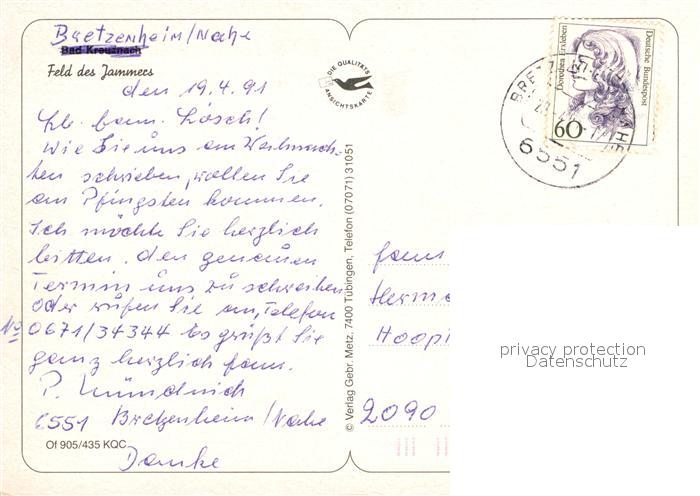 Bretzenheim/Nahe
Bad Kreuznach
Feld des Jammers
den 19.4.91
Lb. Fam. Lösch!
Wie Sie uns am Weihnach-
ten schrieben, wollen Sie
am Pfingsten kommen.
Ich möchte Sie herzlich
bitten. den genauen
Termin uns zu schreiben
oder rufen Sie an, Telefon
No 0671/34344 Es grüßt Sie
ganz herzlich Fam.
P.
6551 Bretzenheim/Nahe
Danke
Of 905/435 KQC
DIE QUALITÄTS
ANSICHTSKARTE
© Verlag Gebr. Metz, 7400 Tübingen, Telefon (07071) 31051
Dorothea Erxleben
Deutsche Bundespost
60
6551
Fam
Herm
Hoop
2090
privacy protection
Datenschutz